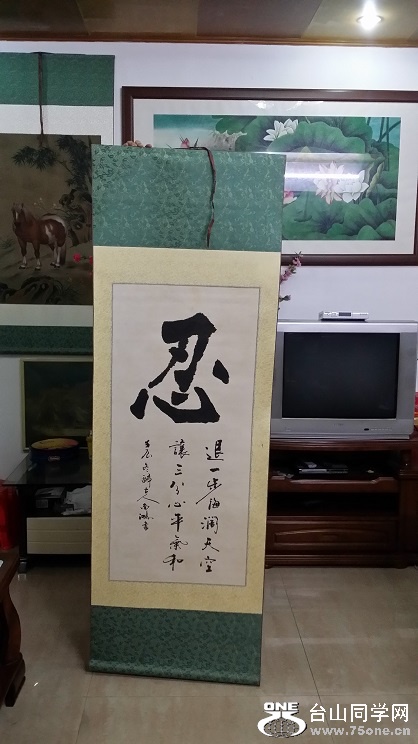 忍
退一步海濶天空
讓三分心平氣和
ONE
台山同学网
www.75one.cn